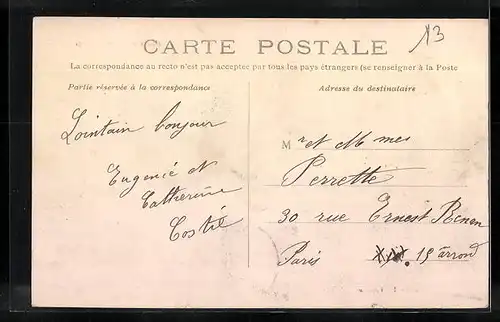 13
CARTE POSTALE
La correspondance au recto n'est pas acceptée par tous les pays étrangers (se renseigner à la Poste
Partie réservée à la correspondance
Adresse du destinataire
Lointain bonjour
Eugenie et
Catherine
Costé
Mr et M mes
Perrette
30 rue Ernest Renan
Paris 15 arrond